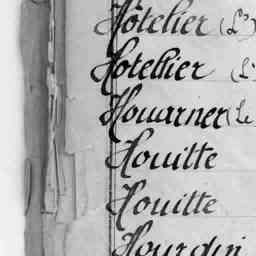 Hôtelier (L'
Hotellier (L'
Houarner (Le
Houitte
Houitte
Hourdin